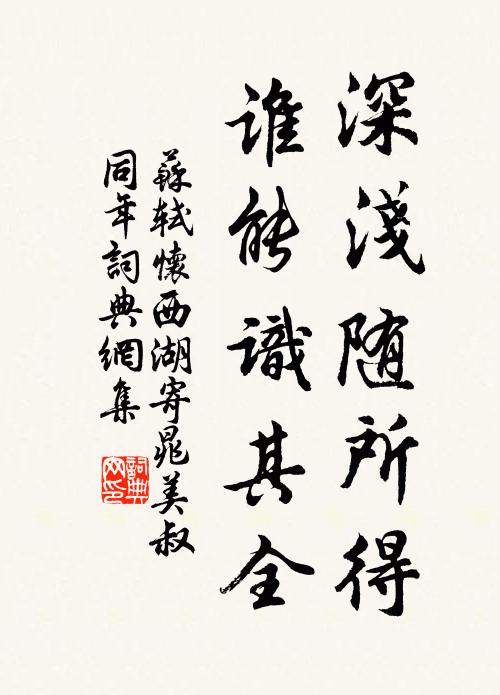 深淺随所得
谁能識其全
蘇軾懷西湖寄晁美叔
同年詞典網集
詞典
网印